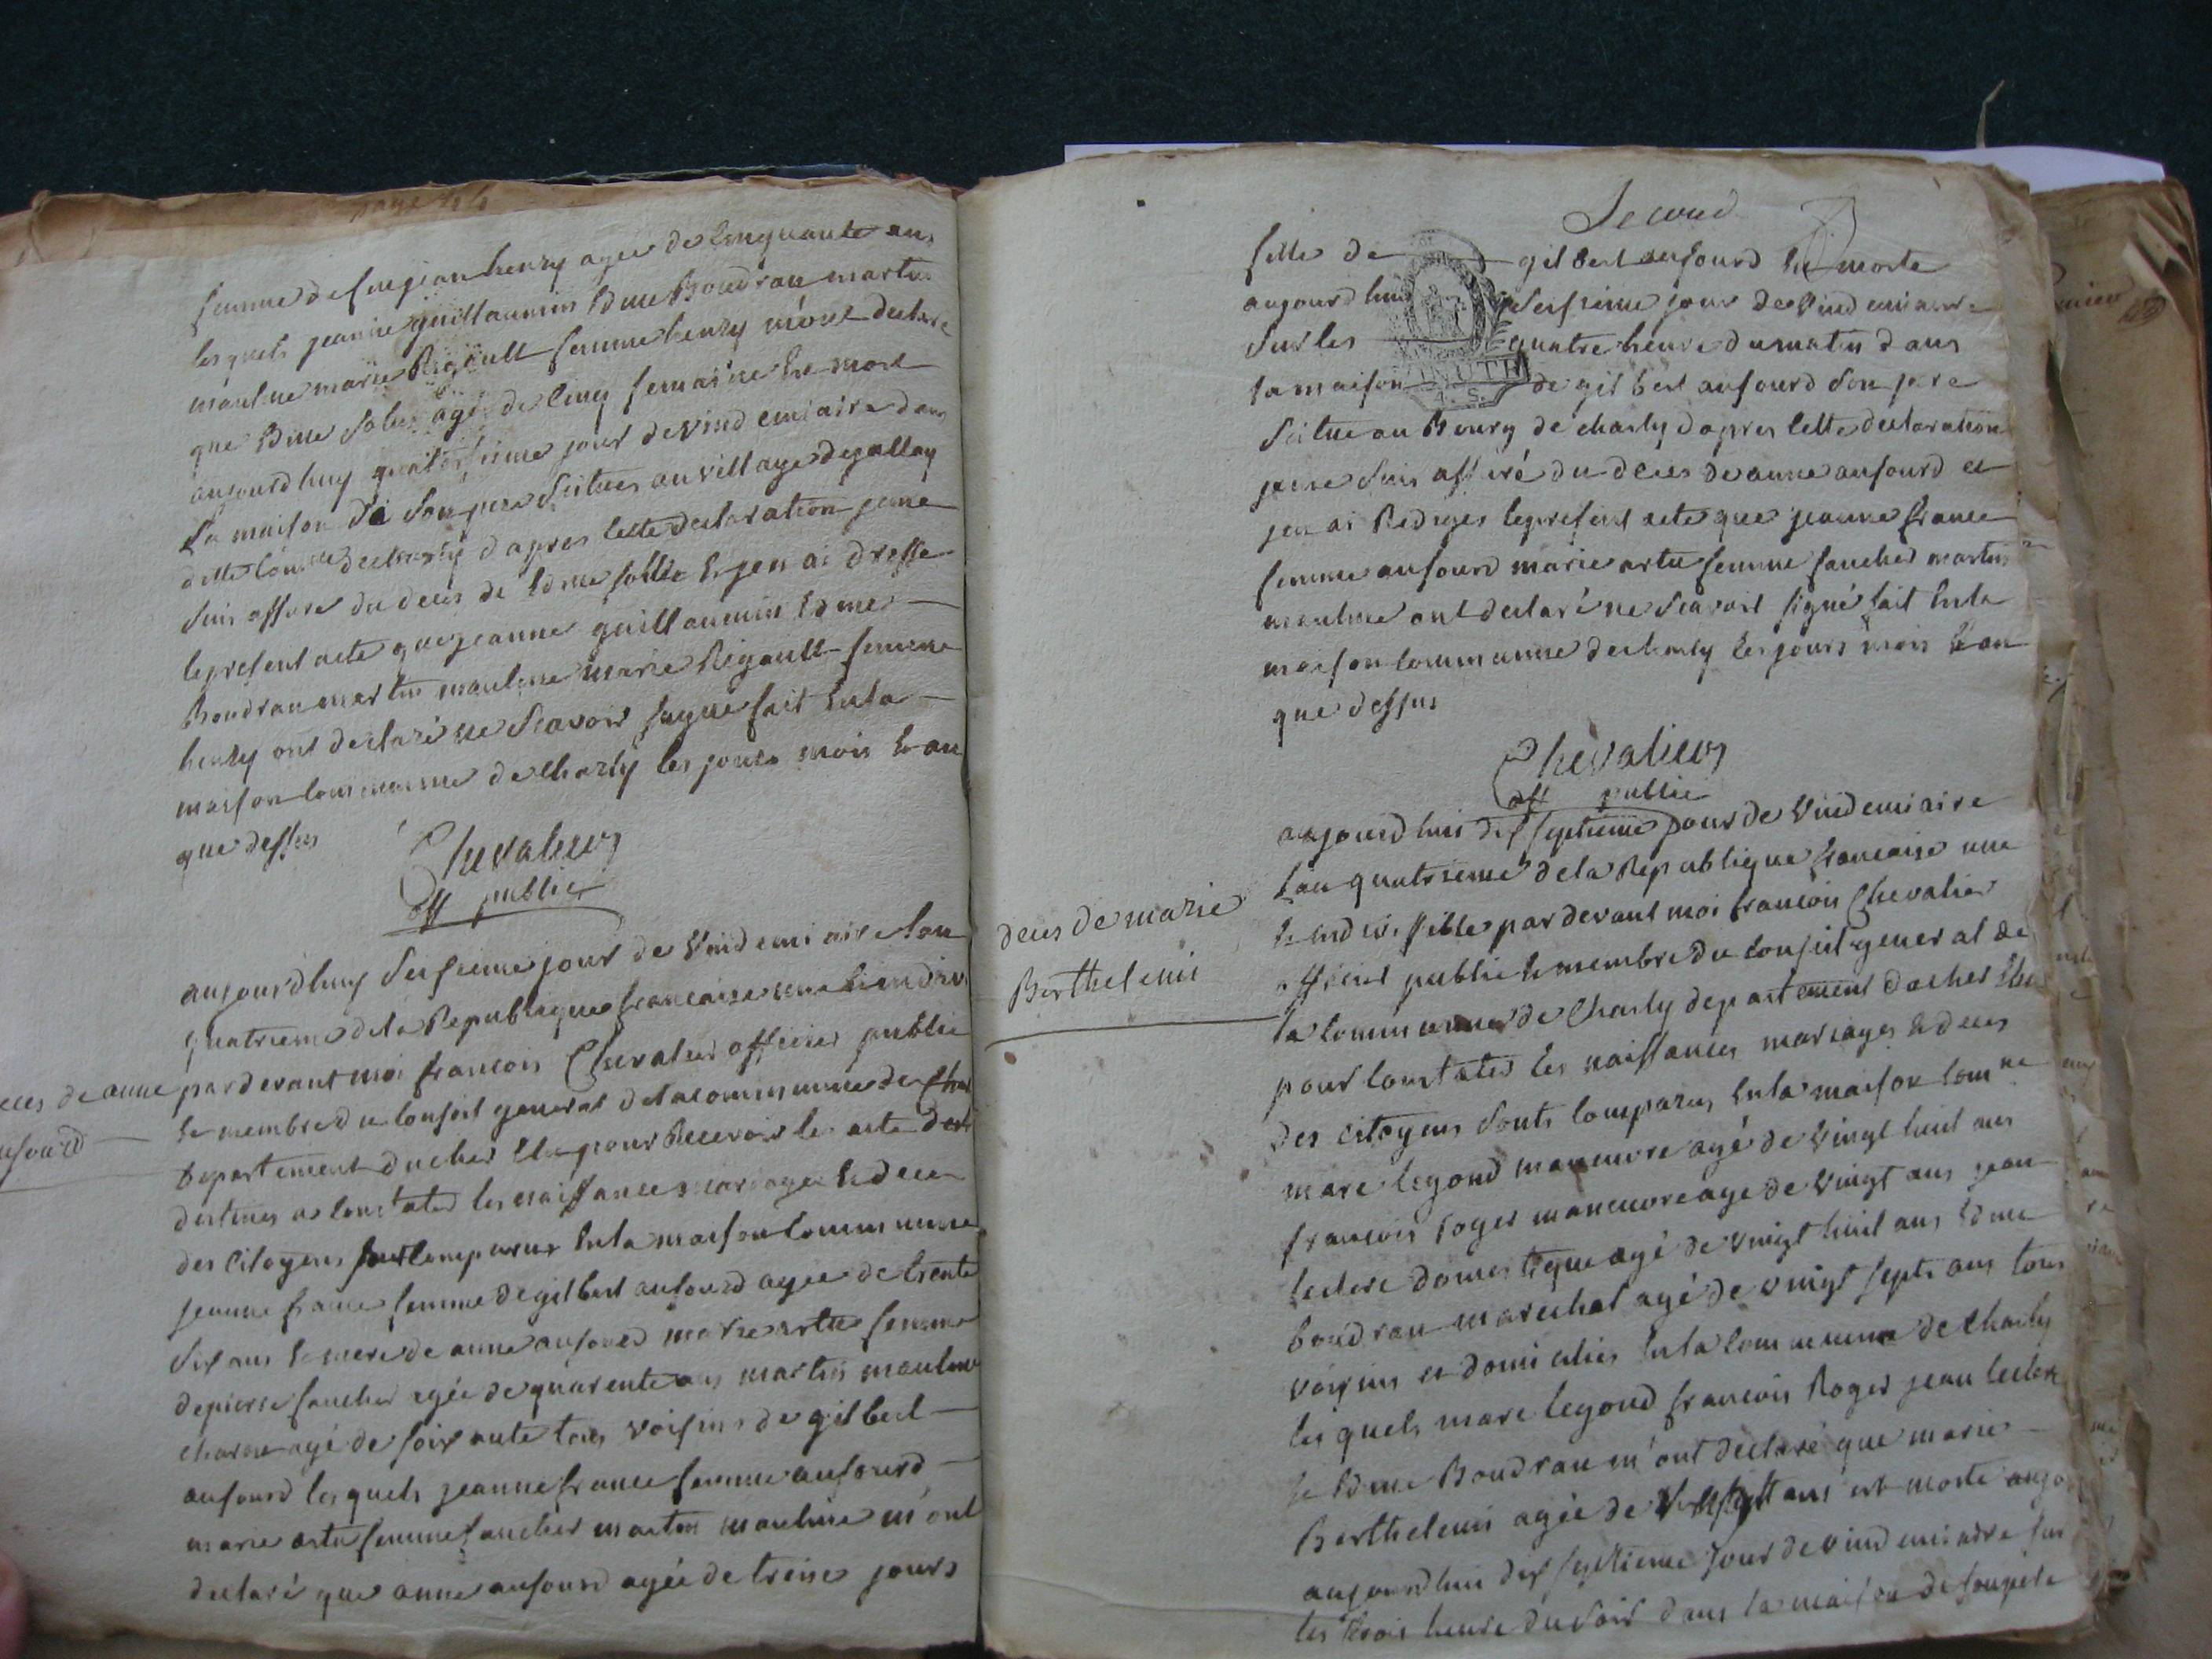 femme de feu jean henry agee de cinquante ans
lesquels jeanne guillaumin Edme Boudrau martin
maulne marie Rigault femme henry m'ont declaré
que Edme agé de cinq semaine Est mort
aujourdhuy quatorsieme jour de vind emiaire dans
la maison de son pere scitues au village degallay
ditte comne decharly d apres cette declaration jeme
suis assure du deces de Edme Et jen ai dresse
lepresent acte que jeanne guillaumin Edme
Boudrau martin maulme marie Rigault femme
henry ont declaré ne scavoir signe fait Enla
maison commune de charly les jours mois Et an
que dessus
Chevalier
off public
aujourdhuy seisieme jour de Vind emi aire lan
quatrieme dela Republique francaise une Et indivi
deces de anne
aufourd
pardevant moi francois Chevalier officier public
Et membre du conseil general de la commune de Char
departement ducher Elu pour Recevoir les acte desti
destines a constater les naissances mariages Et deces
des citoyens sont comparus Enla maison commune
jeanne france femme de gilbert aufourd agee de trente
six ans Et mere de anne aufourd marie artu femme
depierre faucher agée de quarente ans martin maulme
charon agé de soixante tous voisins de gilbert
aufourd lesquels jeanne france femme aufourd
marie artu femme faucher martin maulme m'ont
declaré que anne aufourd agée de treise jours
Second
fille de gilbert aufourd Est morte
aujourd huis seisieme jour de Vind emiaire
sur les quatre heure du matin dans
la maison de gilbert aufourd son pere
scitue au Bourg de charly d apres cette declaration
jeme suis assuré du deces de anne aufourd et
jen ai Rediges lepresent acte que jeanne france
femme aufourd marie artu femme faucher martin
maulme ont declaré ne scavoir signé fait Enla
maison commune decharly les jours mois Et an
que dessus
Chevalier
off public
aujourd huis dix septieme jour de Vindemiaire
lan quatrieme dela Republique francaise une
Et indivisible pardevant moi francois Chevalier
deces de marie
Berthelemi
officier public Et membre du conseil general de
la commune de Charly departement ducher Elu
pour constater les naissances mariages Et deces
des citoyens sonts comparus Enla maison comne
marc legond maneuvre agé de vingt huit ans
francois roger maneuvre age de vingt ans jean
leclerc domestique agé de vingt huit ans Edme
boudrau marechal agé de vingt septs ans tous
voisins et domicilies Enla commune de charly
lesquels marc legond francois Roger jean leclerc
Et Edme Boudrau m'ont declaré que marie
Berthelemi agée de ans est morte aujo
aujourdhui dix septieme jour de vind emiaire sur
les trois heure du soir dans la maison de